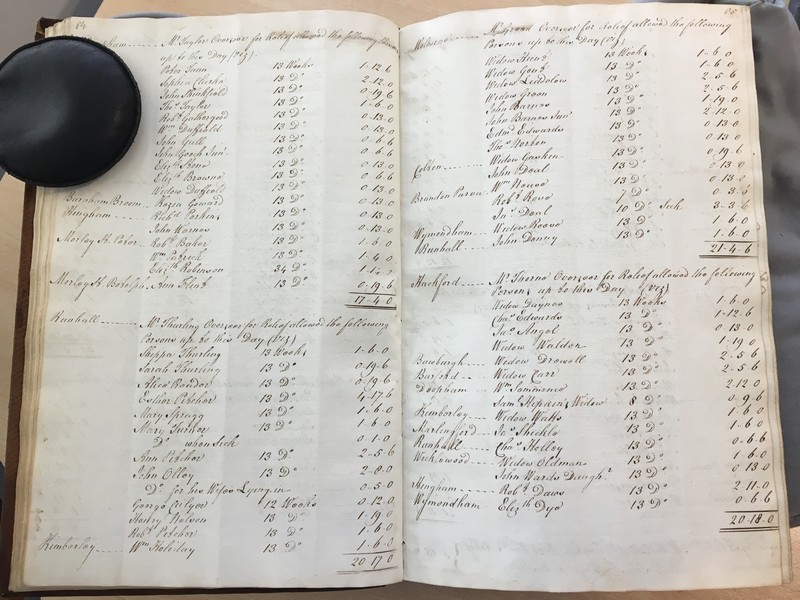 84
ham Mr Taylor Overseer for Relief allowed the following Persons
up to this Day (viz)
Peter Tann 13 Weeks 1-12-6
Sophia Clarke 13 Do 2-12-0
John Skinfield 13 Do 0-19-6
Thos Taylor 13 Do 1-6-0
Robt Gathergood 13 Do 0-13-0
Wm Duffield 13 Do 0-13-0
John Gull 13 Do 0-6-6
John Gooch Junr 13 Do 0-6-6
Elizth Brown 13 Do 0-13-0
Elizth Browne 13 Do 0-6-6
Widow Duffield 13 Do 0 13-0
Burnham Broom Kezia Goward 13 Do 0 13-0
Hingham Robt Perkins 13 Do 0-13-0
John Warnes 13 Do 0-13-0
Morley St Peter Robt Baker 13 Do 1-6-0
Wm Patrick 13 Do 1-4-0
Elizth Robinson 34 Do
Morley St Botolph Ann Flint 13 Do 0-19-6
17-4-0
Runhall Mr Thurling Overseer for Relief allowed the following
Persons up to this Day (Viz)
Skippa Thurling 13 Weeks 1-6-0
Sarah Thurling 13 Do 0-19-6
Alice Bunder 13 Do 0-19-6
Esther Pitcher 13 Do 4-17-6
Mary Spragg 13 Do 1-6-0
Mary Turner 13 Do 1-6-0
Do when Sick 0-1-0
Ann Pitcher 13 Do 2-5-6
John Olley 13 Do 2-0-0
Do for his Wifes Lying in 0-5-0
George Culyer 12 Weeks 0-12-0
Henry Nelson 13 Do 1-19-0
Robt Pitcher 13 Do 1-6-0
Kimberley Wm Holiday 13 Do 1-6-0
20 17 0
85
Mr Green Overseer for Relief allowed the following
Persons up to this Day (Viz)
Widow 13 Weeks 1-6-0
Widow 13 Do 1-6-0
Widow Luddelow 13 Do 2-5-6
Widow Green 13 Do 2-5-6
John Barnes 13 Do 1-19-0
John Barnes Junr 13 Do 2-12-0
Edmd Edwards 13 Do 0 13-0
Thos Norton 13 Do 0 13-0
Widow 13 Do 0-19-6
John Deal 13 Do 0-13-0
Wm 13 Do 0-13-0
Brandon Parva Robt Rose 7 Do 0-3-6
Jno Deal 10 Do Sick 3-3-6
Wymondham Widow Reeve 13 Do 1-6-0
Runhall John Dancy 13 Do 1-6-0
21-4-6
Hackford Mr Thorne Overseer for Relief allowed the following
Persons up to this Day (Viz)
Widow Daynes 13 Weeks 1-6-0
Chas Edwards 13 Do 1-12-6
Jas Angel 13 Do 0 13-0
Widow Waldon 13 Do 1-19-0
Bawburgh Widow Drewell 13 Do 2-5-6
Barford Widow Carr 13 Do 2-5-6
Deopham Wm Sammons 13 Do 2 12-0
Saml Widow 8 Do 0-9-6
Kimberley Widow Watts 13 Do 1-6-0
Marlinford Jas Shickle 13 Do 1-6-0
Runhall Chas Holley 13 Do 0-6-6
Wicklewood Widow Oldman 13 Do 1-6-0
John Wards Daughr 13 Do 0 13-0
Hingham Robt Daws 13 Do 2 11-0
Wymondham Elizth Dye 13 Do 0-6-6
20-18-0